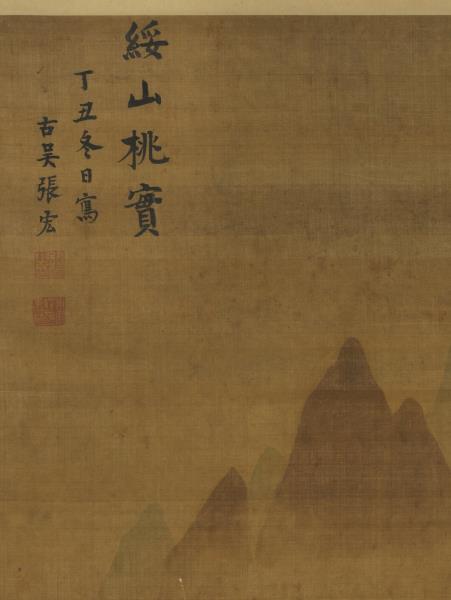 綏山桃實
丁丑冬日寫
古吴張宏